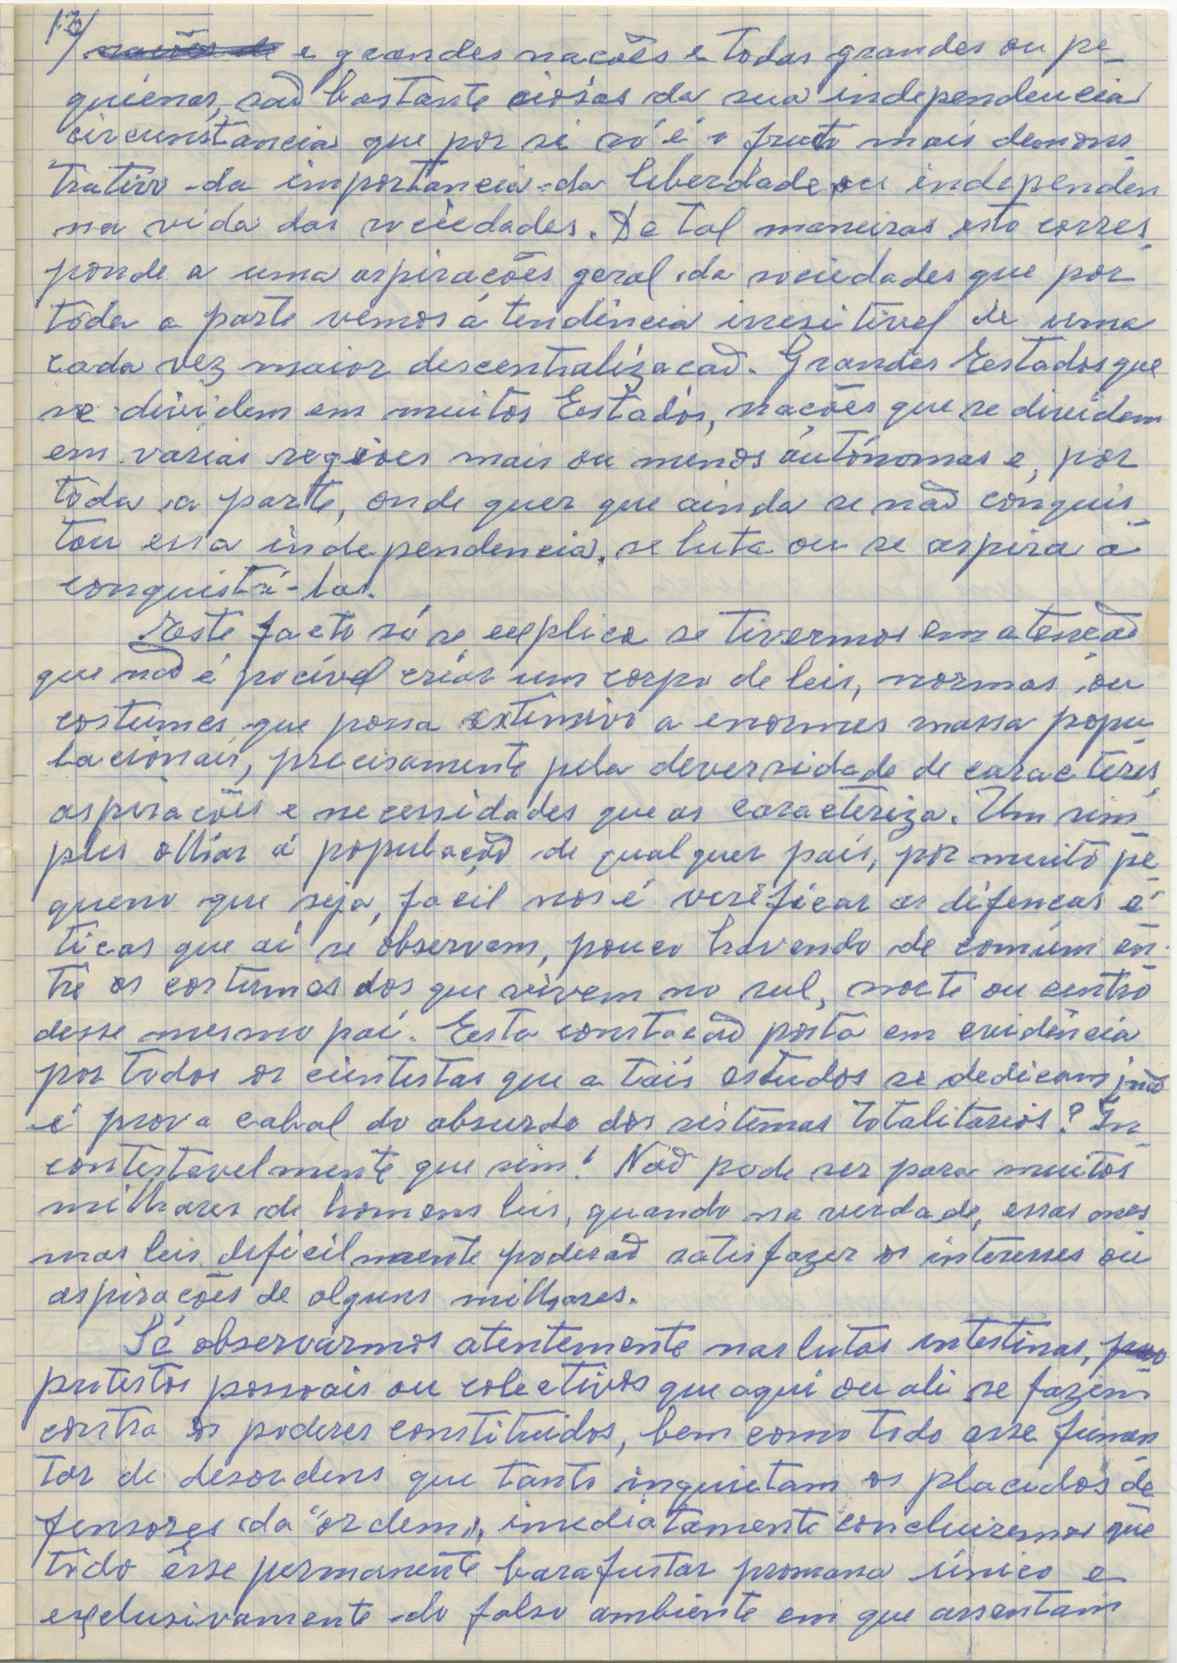 13/ nações de e grandes nações e todas grandes ou pe-
quienas, saõ bastante ciosas da sua independencia
circunstancia que por si só é o fruto mais demons
trativo da importancia da liberdade ou independen
na vida das sociedades. De tal maneiras esto corres-
ponde a uma aspirações geral da sociedades que por
toda a parte vemos á tendência irresitivel de uma
cada vez maior descentralizacaõ. Grandes Estados que
se dividem em muitos Estados, nações que se dividem
em varias regioes mais ou menos áutónomas e, por
toda a parte, onde quer que ainda se naõ conquis-
tou essa independencia, se luta ou se aspira á
conquistá-las.
Este facto só se explica se tivermos em atencaõ
que naõ é pocível criar um corpo de leis, normas ou
costumes que possa extensivo a enormes massa popu
lacionais, precisamente pela deversidade de caracteres,
aspirações e necessidades que as caracteriza. Um sim
ples olhar á populaçaõ de qualquer país, por muito pe
queno que seja, facil nos é verificar as difencas é
ticas que aí se observam, pouco havendo de comúm en-
tre os costumes dos que vivem no sul, norte ou centro
desse mesmo paí. Esta constacaõ posta em evidência
por todos os cientestas que a tais estudos se dedicam, naõ
é prova cabal do absurdo dos sistemas totalitarios? In
contestavelmente que sim! Naõ pode ser para muitos
milhares de homens leis, quando na verdade, essas mes
mas leis deficilmente poderaõ satisfazer os interesses ou
aspirações de alguns milhares.
Se observármos atentemente nas lutas intestinas,
protestos pessoais ou colectivos que aqui ou ali se fazem
contra os poderes constituidos, bem como todo esse fumen
tar de desordens que tanto inquietam os placidos de
fensores da "ordem", imediatamente concluiremos que
todo êsse permanente barafustar promana único e
exclusivamente do falso ambiente em que assentam